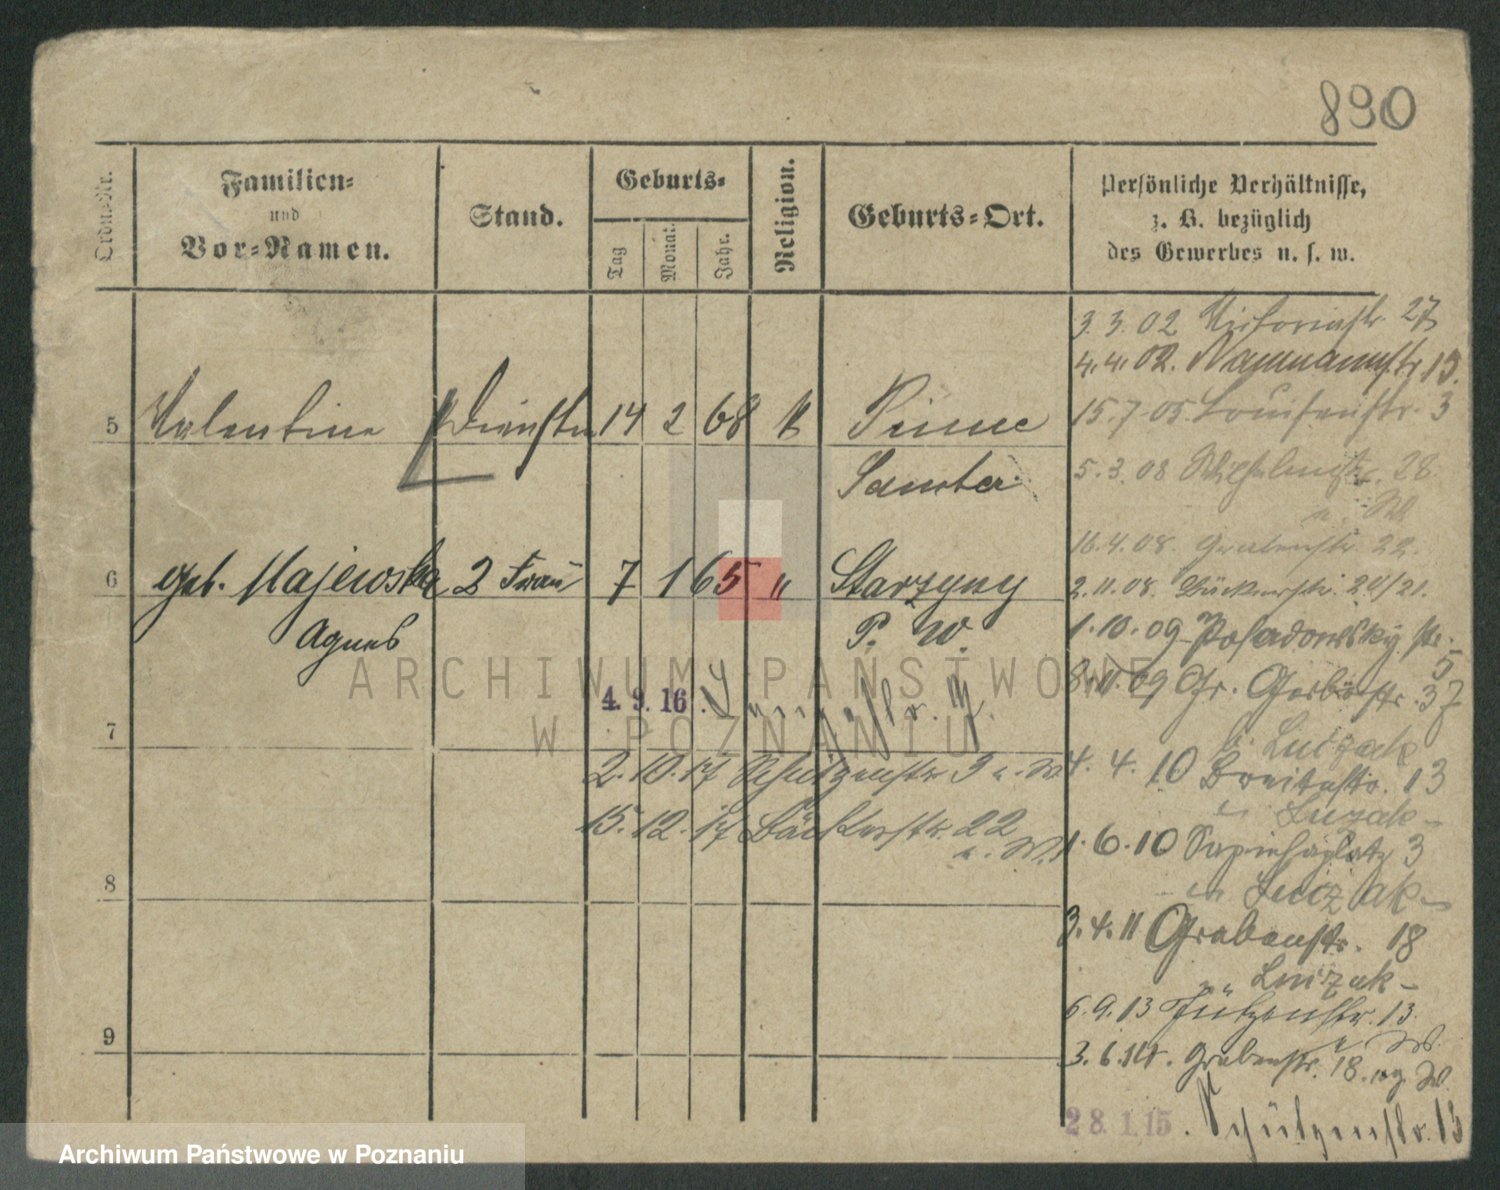 890
Ordn.-Nr.
Familien-
und
Vor-Namen.
Stand.
Geburts-
Tag
Monat.
Jahr.
Religion.
Geburts-Ort.
Persönliche Verhältnisse,
z. B. bezüglich
des Gewerbes u. s. w.
3.3.02 Victoriastr. 27
4.4.02. Naumannstr 13.
15.7.05. Louisenstr 3
5 Valentine 14 2 68 k Pinne
Samter
5.3.08 28
16.4.08. Grabenstr. 22.
6 geb. Majewska 2 Frau 7 1 65 " Starzyny
Agnes P. W.
2.11.08. Bäckerstr. 20/21.
1.10.09 Posadowsky str.
5
8.11.09 Gr. Gerberstr. 37
b. Luizak
4.9.16.
7
2.10.17 Schützenstr 3 u. W.
4.4.10 Breitestr. 13
" Luizak -
15.12.17 Bäckerstr. 22
u. W.
1.6.10 Sapiehaplatz 3
" Luizak -
8
3.4.11 Grabenstr. 18
" Luizak -
6.9.13 Schützenstr. 13.
9
3.6.14. Grabenstr. 18.
28.1.15. Schützenstr. 13
ARCHIWUM PAŃSTWOWE
W POZNANIU
Archiwum Państwowe w Poznaniu